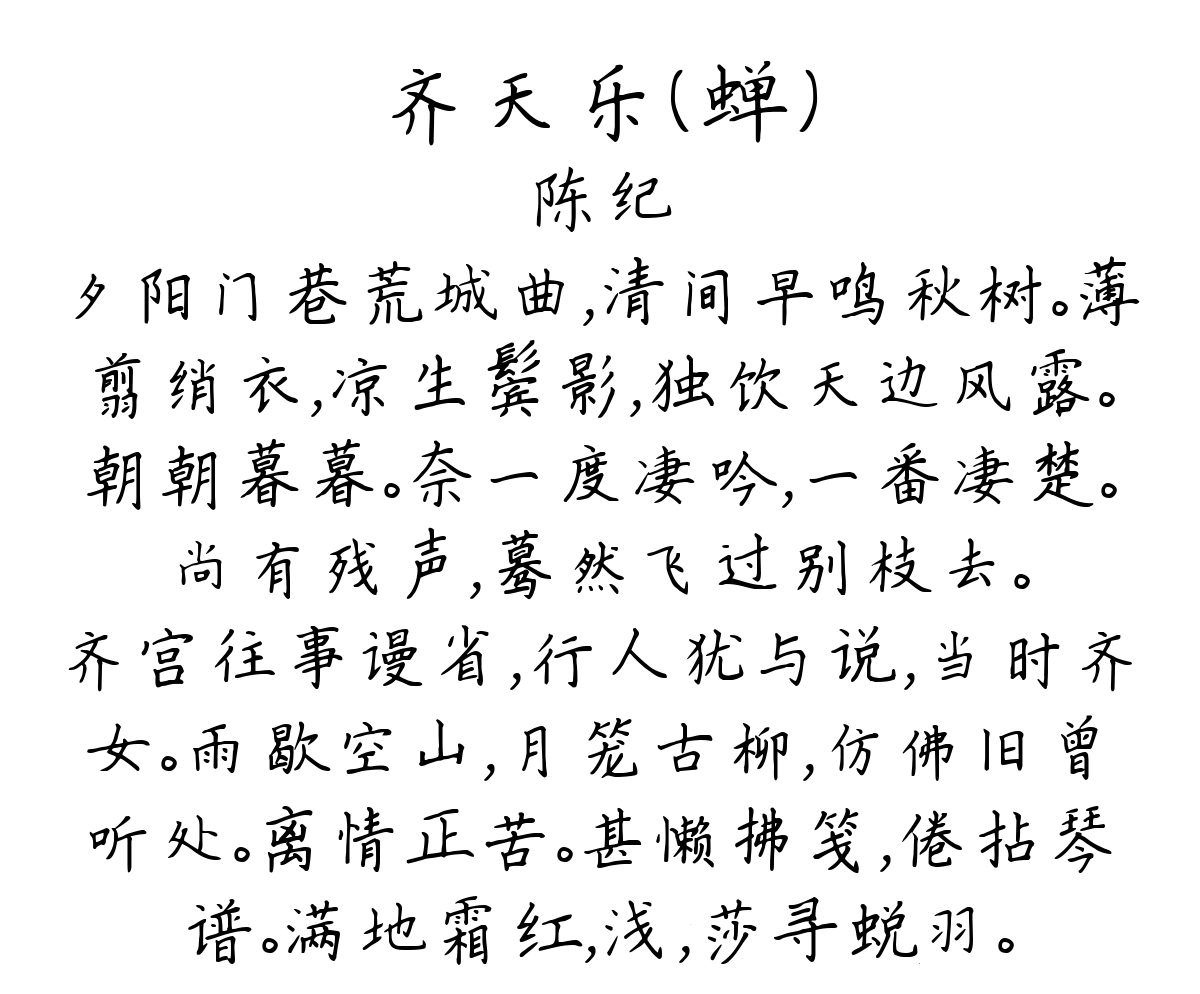 齐天乐(蝉)
陈纪
夕阳门巷荒城曲,清间早鸣秋树。薄
剪绡衣,凉生鬓影,独饮天边风露。
朝朝暮暮。奈一度凄吟,一番凄楚。
尚有残声,蓦然飞过别枝去。
齐宫往事谩省,行人犹与说,当时齐
女。雨歇空山,月笼古柳,仿佛旧曾
听处。离情正苦。甚懒拂笺,倦拈琴
谱。满地霜红,浅,莎寻蜕羽。